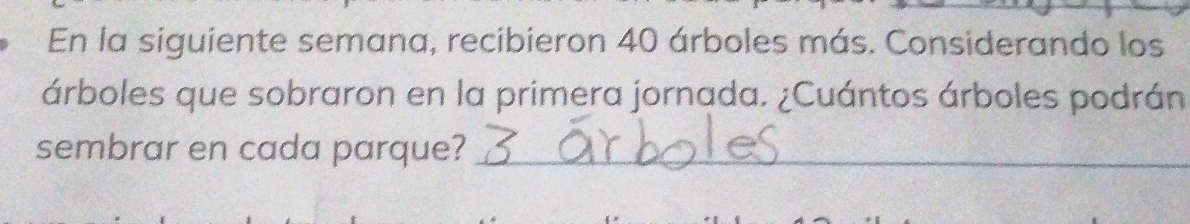 En la siguiente semana, recibieron 40 árboles más. Considerando los
árboles que sobraron en la primera jornada. ¿Cuántos árboles podrán
sembrar en cada parque? 3 árboles